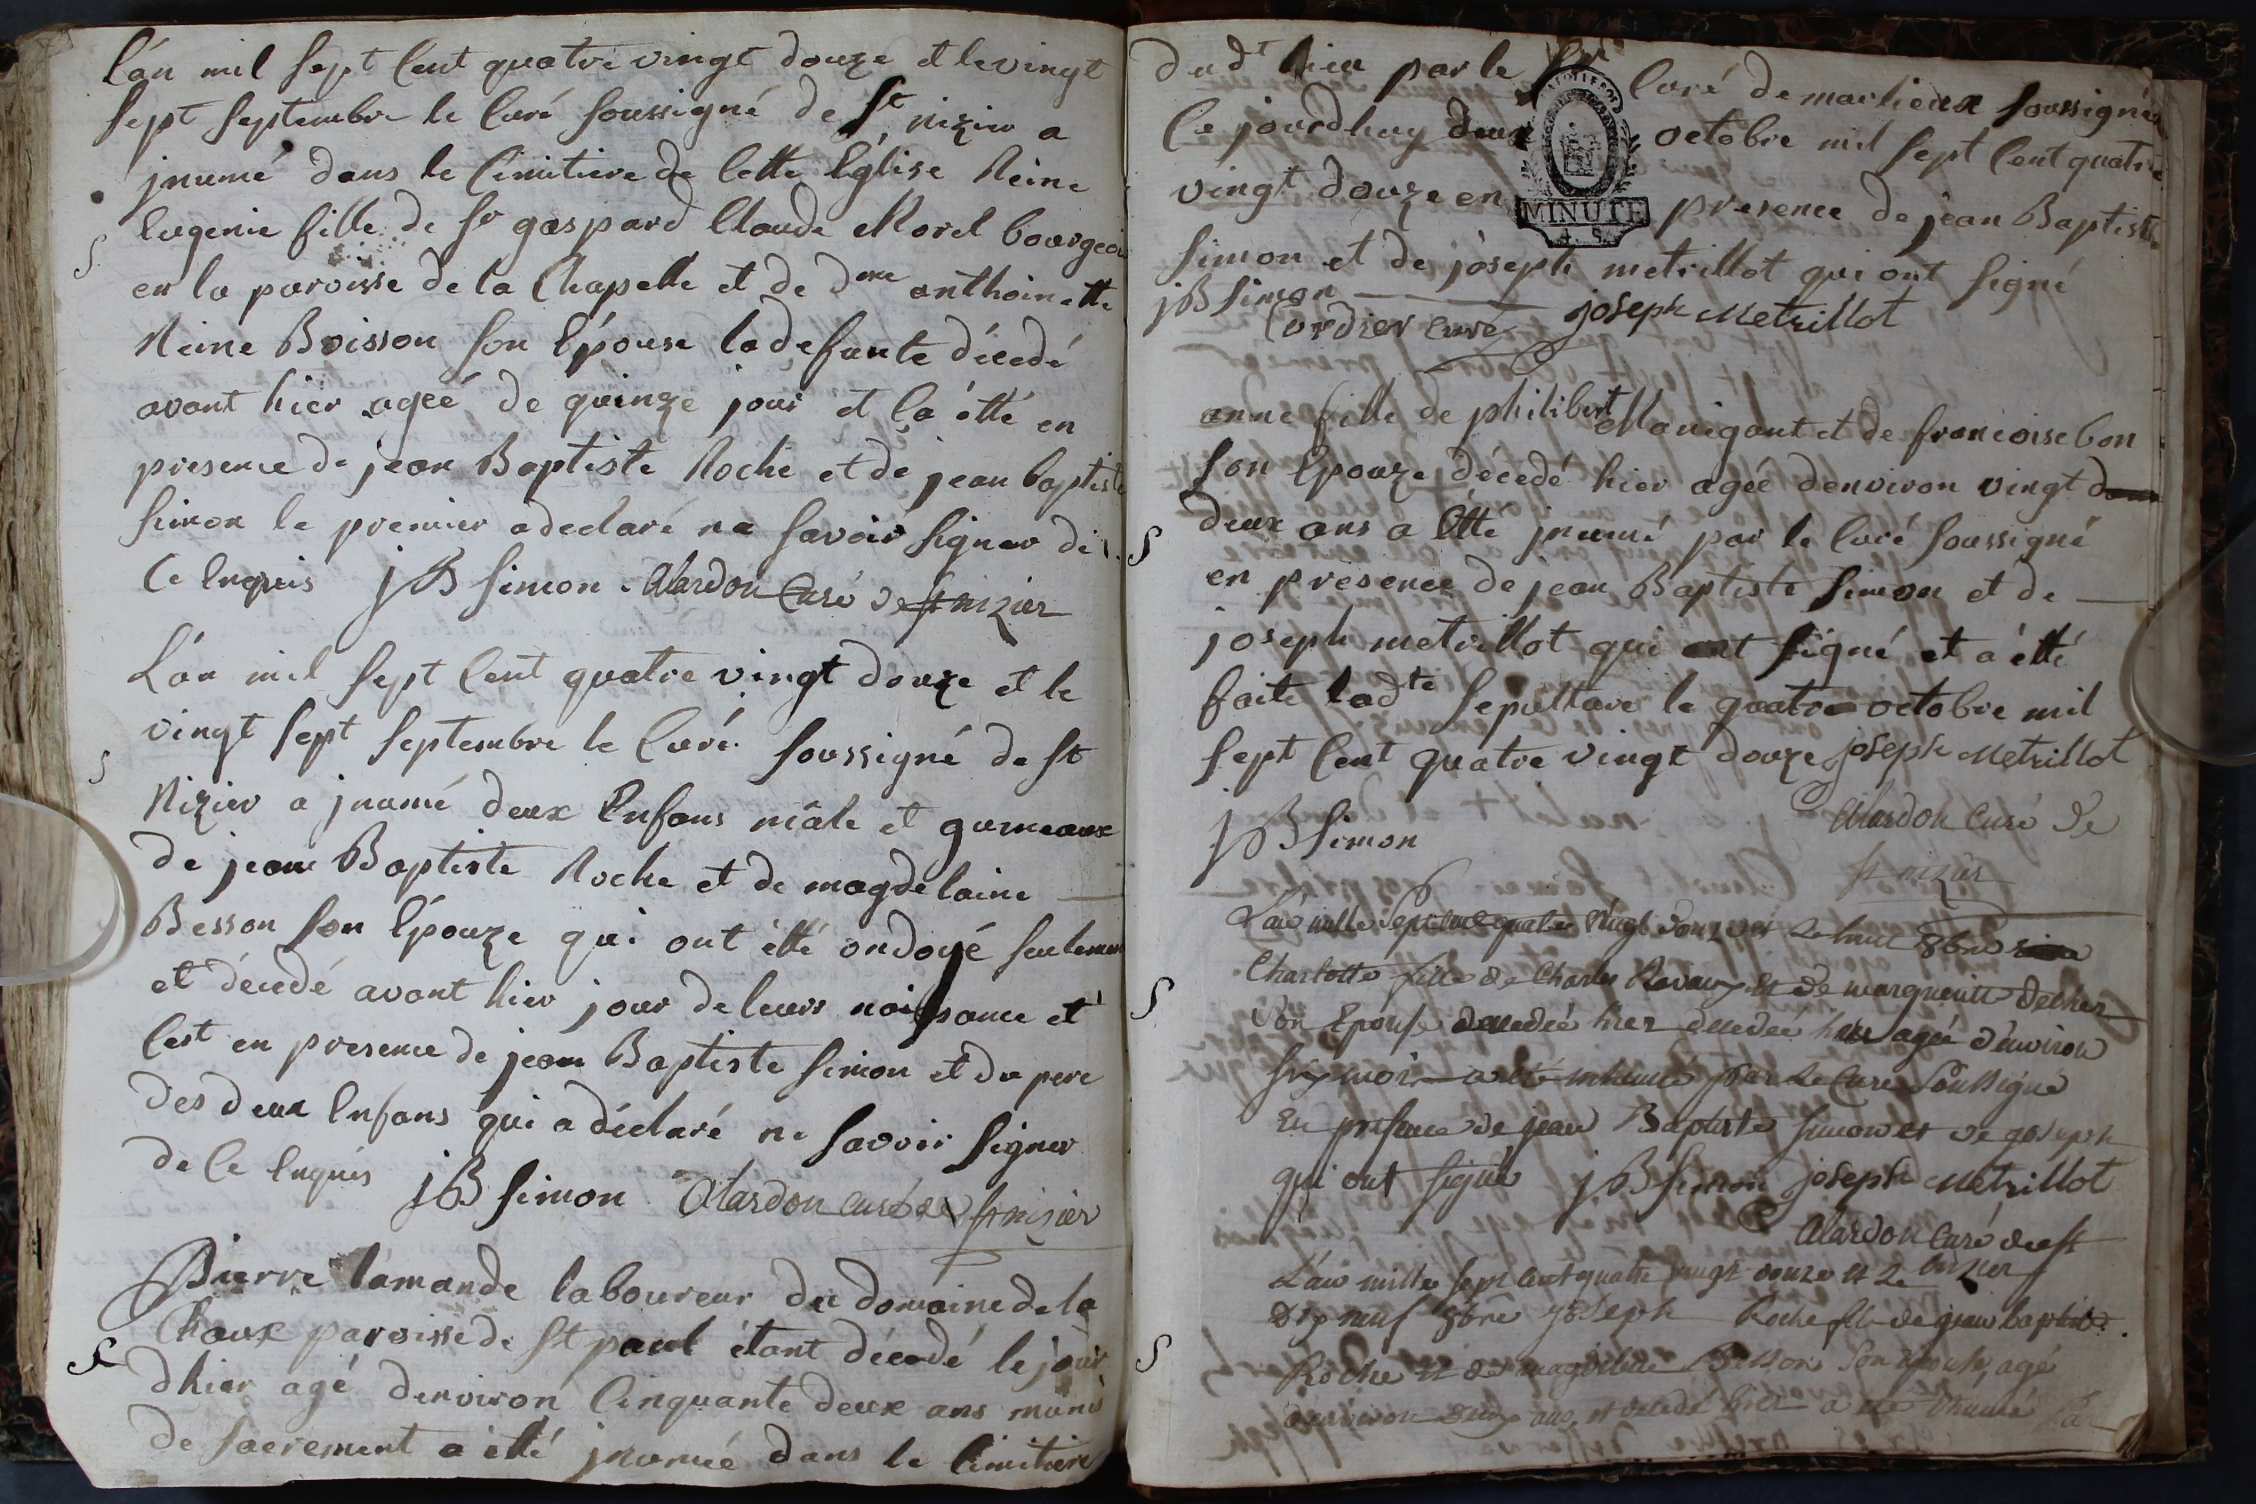 L'an mil sept cent quatre vingt douze et le vingt
sept septembre le curé soussigné de St nizier a
jnumé dans le cimitiere de cette Eglise Reine
Eugenie fille de Sr gaspard Claude Morel bourgeois
en la paroisse de la Chapelle et de dme anthoinette
Reine Boisson son Epouse la defunte décedé
avant hier agée de quinze jour et ça étté en
presence de jean Baptiste Roche et de jean baptiste
Simon le premier a declaré ne savoir signer de
ce enquis JB Simon Alardon curé de st nizier
L'an mil sept cent quatre vingt douze et le
vingt sept septembre le curé soussigné de st
Nizier a jnumé deux Enfans mâle et gumeaux
de jean Baptiste Roche et de magdelaine
Besson son Epouze qui ont étté ondoyé seulement
et décedé avant hier jour de leurs naissance et
c'est en presence de jean Baptiste Simon et du pere
des deux Enfans qui a déclaré ne savoir signer
de ce enquis JB Simon Alardon curé de st nizier
Pierre lamande laboureur du domaine de la
Chaux paroisse de St paul étant décedé le jour
dhier agé denviron Cinquante deux ans muni
de sacrement a étté jnumée dans le cimitiere
dud't lieu par le Sr curé de marlieux soussigné
Ce jourdhuy deux octobre mil sept cent quatre
vingt douze en presence de jean Baptiste
MINUTE
Simon et de joseph metrillot qui ont signé
JB Simon
Cordier curé joseph Metrillot
anne fille de philibert Mauigant et de francoise bon
son Epouze décedé hier agée denviron vingt
deux ans a étté jnumé par le curé soussigné
en presence de jean Baptiste Simon et de
joseph metrillot qui ont signé et a étté
faite ladte sepulture le quatre octobre mil
sept cent quatre vingt douze joseph Metrillot
JB Simon Alardon curé de
st nizier
L'an mille sept cent quatre vingt douze et le huit 8bre
Charlotte fille de Charles Ravaux et de marguerite
son Epouse decedée hier decedée hier agée d'environ
six mois a été inhumé par le curé soussigné
En presence de jean Baptiste Simon et de joseph
qui ont signé JB Simon joseph Metrillot
Alardon curé de st
nizier
L'an mille sept cent quatre vingt douze et le
dix neuf 8bre joseph Roche fils de jean baptiste
Roche et de magdelene Besson son epouse, agé
d'environ deux ans, et decedé hier a été inhumé par